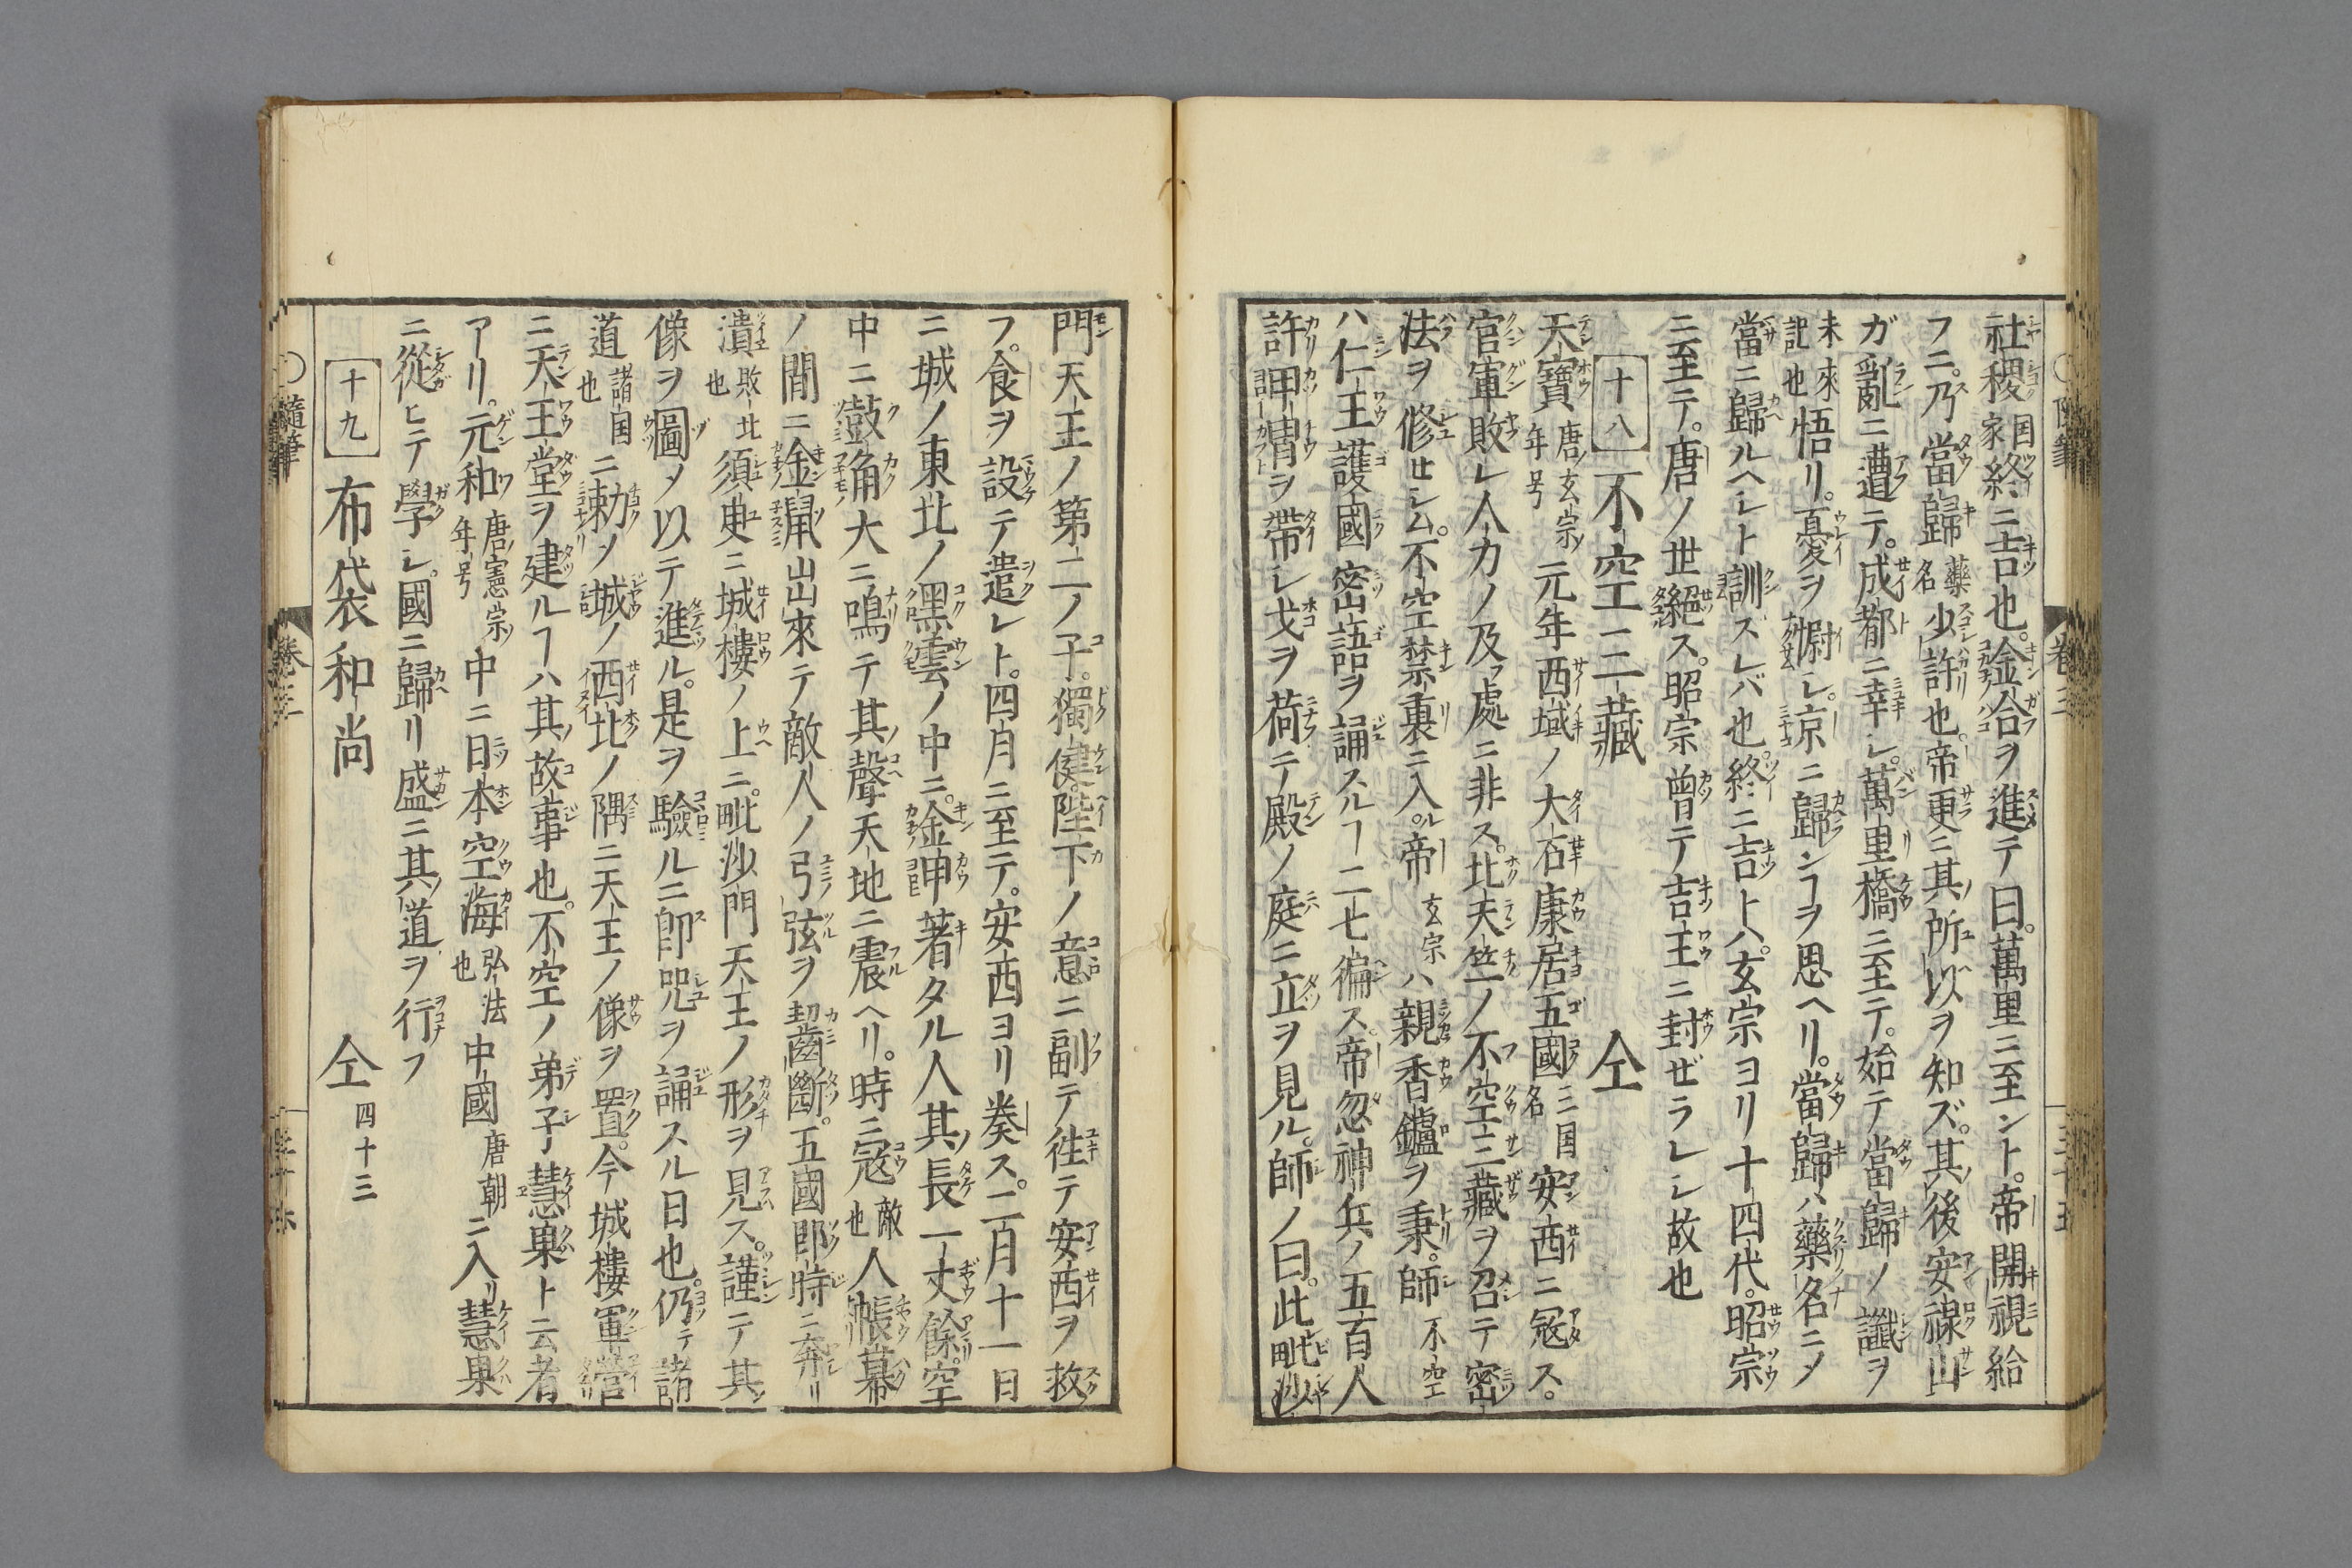 社稷国家終ニ吉也。金合ヲ進テ曰。萬里ニ至ント。帝開視給
フニ。乃當歸藥名少許也。帝更ニ其所以ヲ知ズ。其後安祿山
ガ亂ニ遭テ。成都ニ幸シ。萬里橋ニ至テ。始テ當歸ノ讖ヲ
未來記也悟リ。憂ヲ慰シ。京ニ歸ンヿヲ思ヘリ。當歸ハ藥名ニメ
當ニ歸ルヘシト訓ズレバ也。終ニ吉トハ。玄宗ヨリ十四代。昭宗
ニ至テ。唐ノ世絕ス。昭宗曾テ吉王ニ封ゼラレシ故也
十八 不空三藏 仝
天寶唐ノ玄宗ノ年号元年西域ノ大石康居五國三国名安西ニ寇ス。
官軍敗レ人力ノ及フ處ニ非ス。北天竺ノ不空三藏ヲ召テ密
法ヲ修セシム。不空禁裏ニ入ル。帝玄宗ハ親香鑪ヲ秉。師不空
ハ仁王護國密語ヲ誦スルヿ二七徧ス。帝忽神兵ノ五百人
許甲冑ヲ帶シ戈ヲ荷テ殿ノ庭ニ立ヲ見ル。師ノ曰。此毗沙
門天王ノ第二ノ子。獨健。陛下ノ意ニ副テ徃テ安西ヲ救
フ。食ヲ設テ遣レト。四月ニ至テ。安西ヨリ奏ス。二月十一日
ニ城ノ東北ノ黑雲ノ中ニ。金甲著タル人其ノ長一丈餘。空
中ニ鼓角大ニ鳴テ其聲天地ニ震ヘリ。時ニ寇敵也人帳幕
ノ間ニ金鼠出來テ敵人ノ弓弦ヲ齧斷。五國即時ニ奔リ
潰敗北也須臾ニ城樓ノ上ニ。毗沙門天王ノ形ヲ見ス。謹テ其
像ヲ圖メ以テ進ル。是ヲ驗ルニ即咒ヲ誦スル日也。仍テ諸
道諸国也ニ勅メ城ノ西北ノ隅ニ天王ノ像ヲ置。今城樓軍營
ニ天王堂ヲ建ルヿハ其ノ故事也。不空ノ弟子慧果ト云者
アリ。元和唐ノ憲宗ノ年号中ニ日本空海弘法也中國唐朝ニ入リ慧果
ニ從ヒテ學シ。國ニ歸リ盛ニ其ノ道ヲ行フ
十九 布袋和尚 仝四十三
○隨筆 卷三